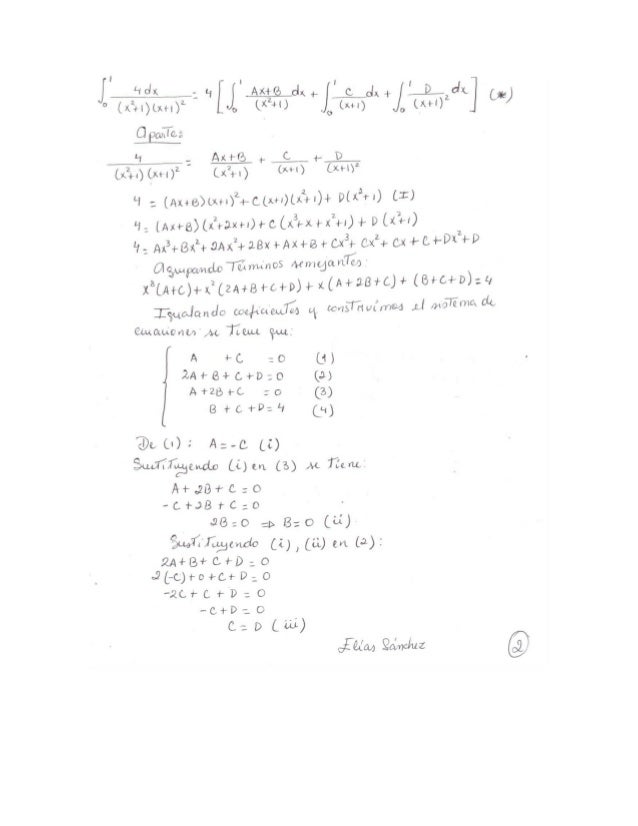 ∫₀¹ 4dx/((x²+1)(x+1)²) = 4[∫₀¹ (Ax+B)/(x²+1) dx + ∫₀¹ C/(x+1) dx + ∫₀¹ D/(x+1)² dx] (*)
Aparte:
4/((x²+1)(x+1)²) = (Ax+B)/(x²+1) + C/(x+1) + D/(x+1)²
4 = (Ax+B)(x+1)² + C(x+1)(x²+1) + D(x²+1) (I)
4 = (Ax+B)(x²+2x+1) + C(x³+x+x²+1) + D(x²+1)
4 = Ax³+Bx²+2Ax²+2Bx+Ax+B+Cx³+Cx²+Cx+C+Dx²+D
Agrupando Términos semejantes:
x³(A+C)+x²(2A+B+C+D)+x(A+2B+C)+(B+C+D)=4
Igualando coeficientes y construímos el sistema de
ecuaciones se Tiene que:
A + C = 0 (1)
2A + B + C + D = 0 (2)
A + 2B + C = 0 (3)
B + C + D = 4 (4)
De (1): A = -C (i)
Sustituyendo (i) en (3) se Tiene:
A + 2B + C = 0
-C + 2B + C = 0
2B = 0 ⇒ B = 0 (ii)
Sustituyendo (i), (ii) en (2):
2A + B + C + D = 0
2(-C) + 0 + C + D = 0
-2C + C + D = 0
-C + D = 0
C = D (iii)
Elías Sánchez
2